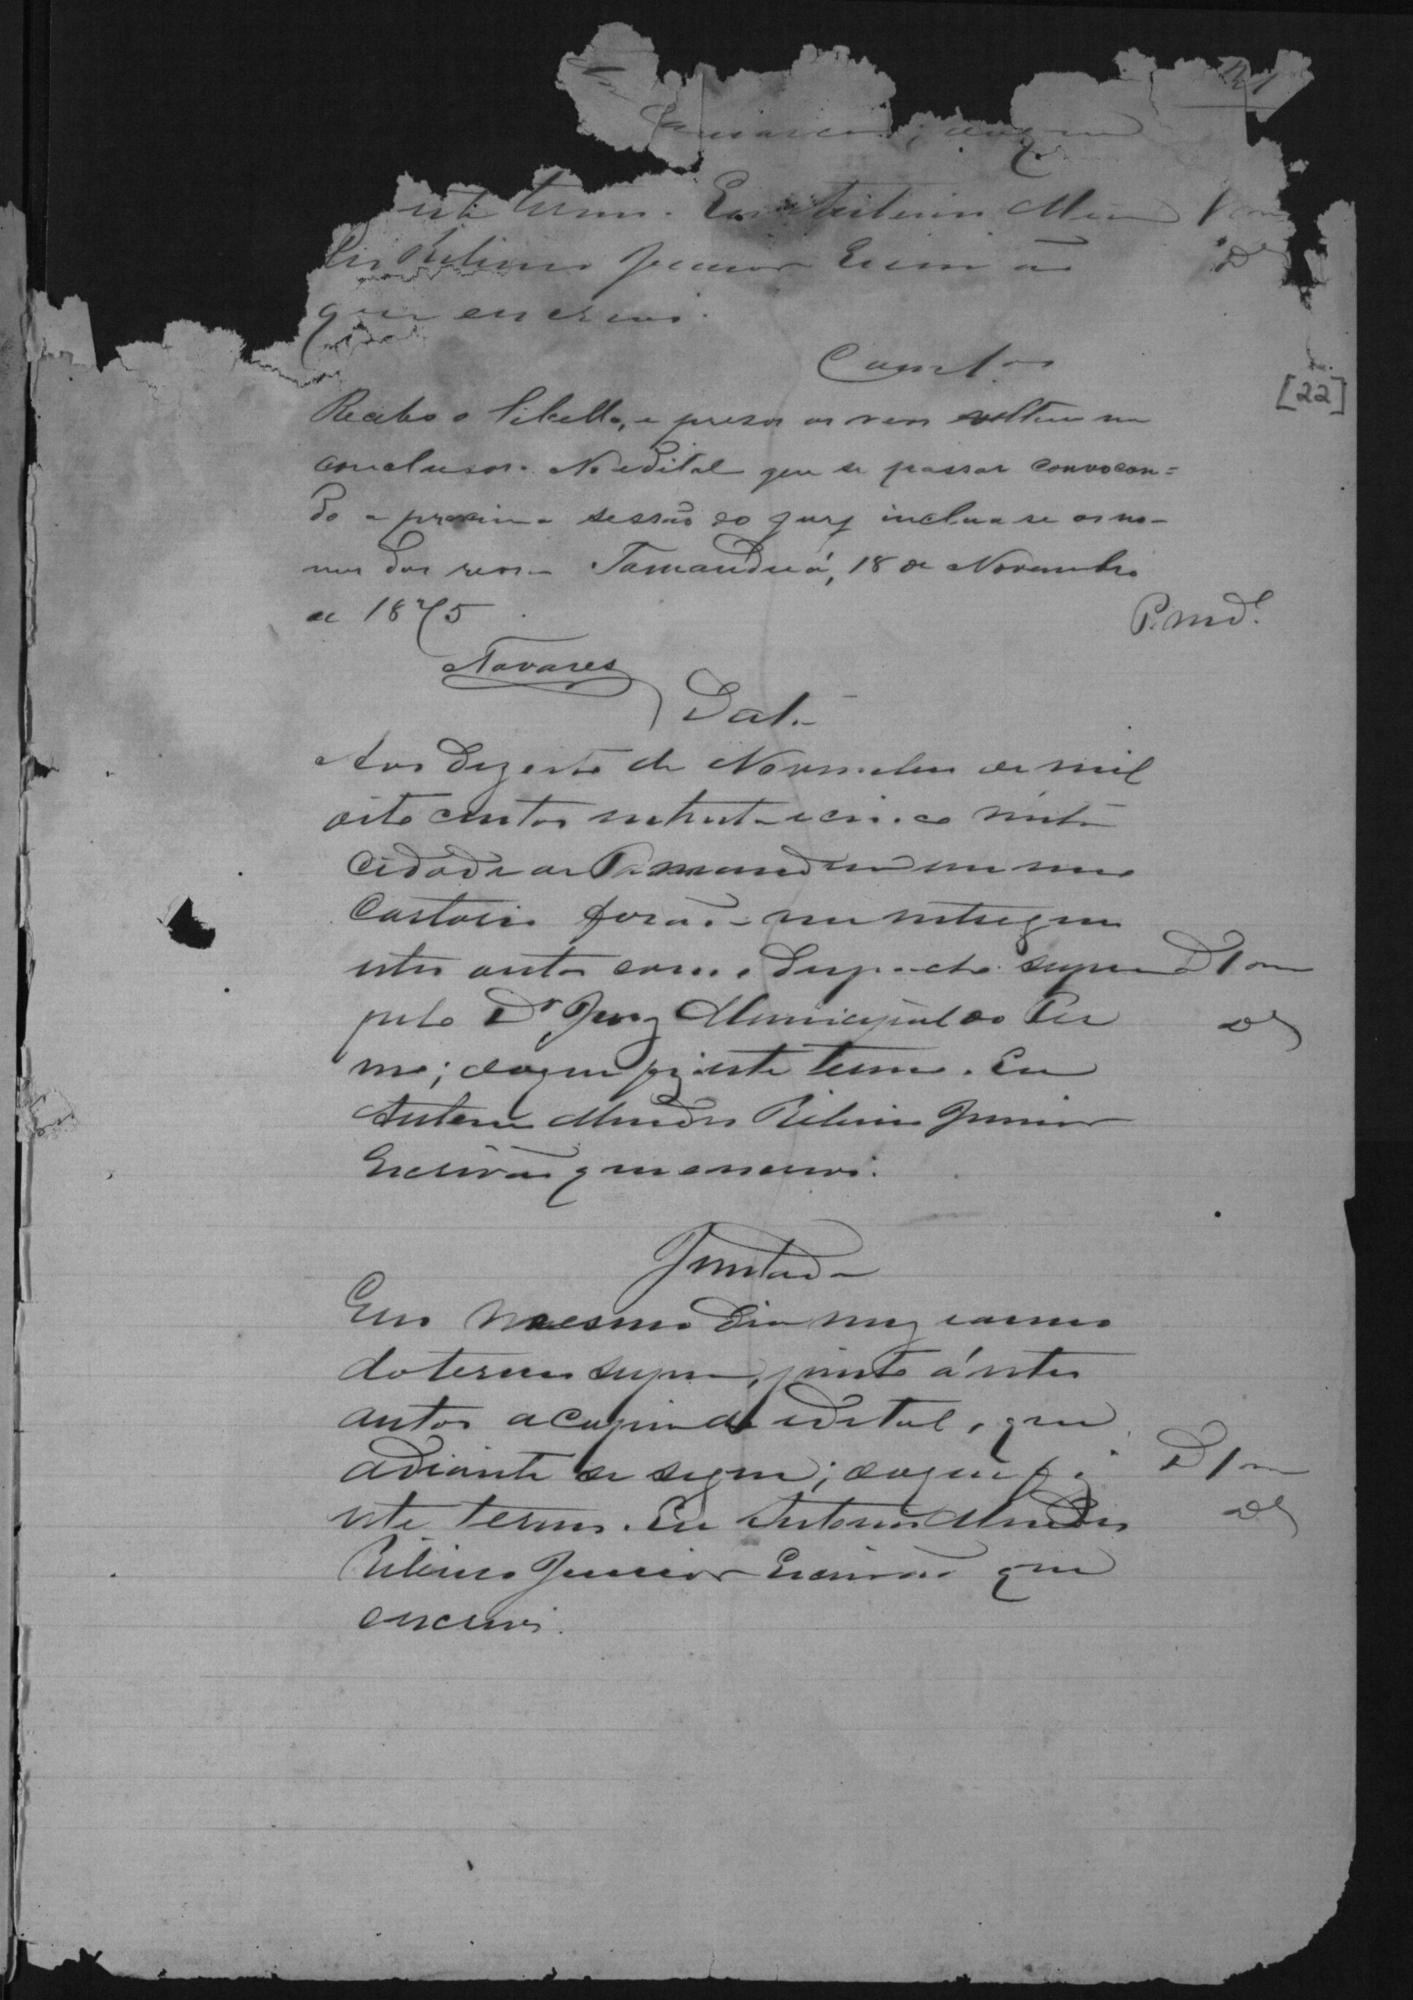 21
doque
este termo. Eu Antonio Men
des Ribeiro Junior Escrivão
que escrevi.
Recebo o libello, e presos os reos voltem me
conclusos. No edital que se passar convocan=
do a proxima sessão do jury inclua-se os no-
mes dos reos. Tamanduá, 18 de Novembro
de 1875
P. md.e
Tavares
Data
Aos dezoito de Novembro de mil
oito centos setenta e cinco n'esta
cidade de Tamanduá em meu
Cartorio forão-me entregues
estes autos com o despacho supra
pelo Dr Juiz Municipal do Ter
mo; do que fiz este termo. Eu
Antonio Mendes Ribeiro Junior
Escrivão que escrevi.
Juntada
Em o mesmo dia mez e anno
do termo supra, junto á estes
autos a copia do edital, que
adiante se segue; do que fiz
este termo. Eu Antonio Mendes
Ribeiro Junior Escrivão que
escrevi.
[22]